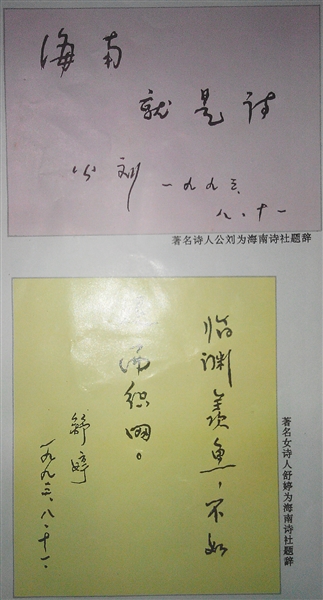 海南
就是诗
公刘 一九九三.
八.十一
著名诗人公刘为海南诗社题辞
临渊羡鱼，不如
而织网。
舒婷
一九九三.八.十一.
著名女诗人舒婷为海南诗社题辞